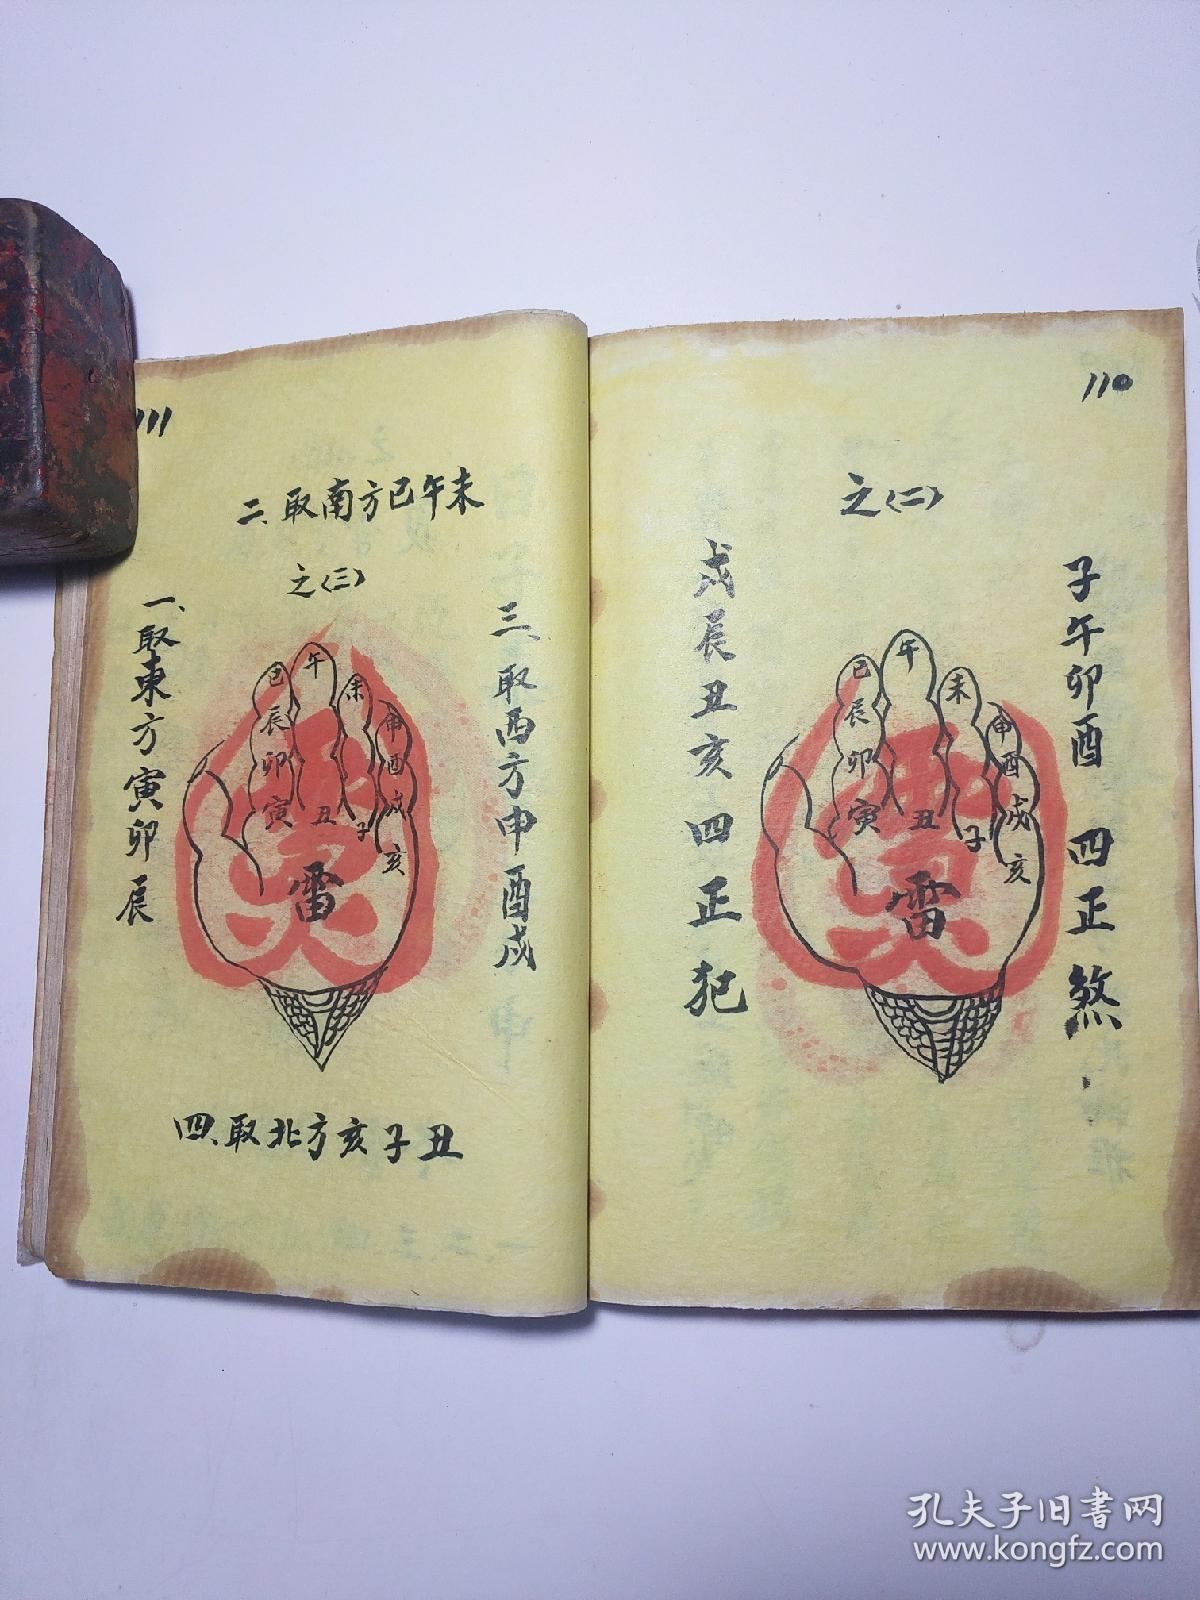 110
之(二)
子午卯酉 四正煞
戌辰丑亥四正犯
巳
辰
卯
寅
午
丑
未
子
申
酉
戌
亥
雷
111
二、取南方巳午未
之(三)
三、取西方申酉戌
一、取東方寅卯辰
巳
辰
卯
寅
午
丑
未
子
申
酉
戌
亥
雷
四、取北方亥子丑
孔夫子旧书网
www.kongfz.com